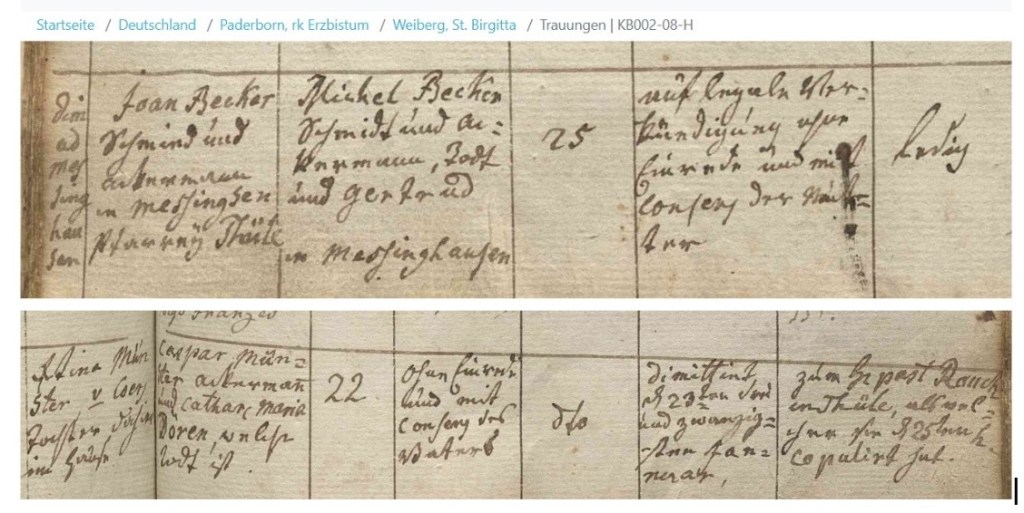 Startseite / Deutschland / Paderborn, rk Erzbistum / Weiberg, St. Birgitta / Trauungen | KB002-08-H
dim
ad
mes
sing
hau
sen
Joan Becker
Schmied und
ackermann
in Messingsen
Pfarrey Thüle
Michel Becker
Schmidt und ac=
kermann, Todt
und Gertrud
in Messinghausen
25
auf legale Ver=
kündigung ohne
Einrede und mit
Consens der Mut=
ter
ledig
Stina Mün
ster v
Tochter
im Hause
Caspar Mün=
ster ackermañ
und Cathar. Maria
Dören, welche
todt ist
22
ohne Einrede
und mit
Consens des
Vaters
dto
dimittirt,
d 23ten drei
und zwanzig=
sten Jan=
nuar,
zum H past Rauch
in Thüle, als wel=
cher sie d 25ten h.
copulirt hat.